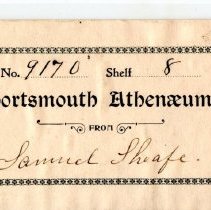 No. 9170 Shelf 8
Portsmouth Athenæum
FROM
Samuel Sheafe.